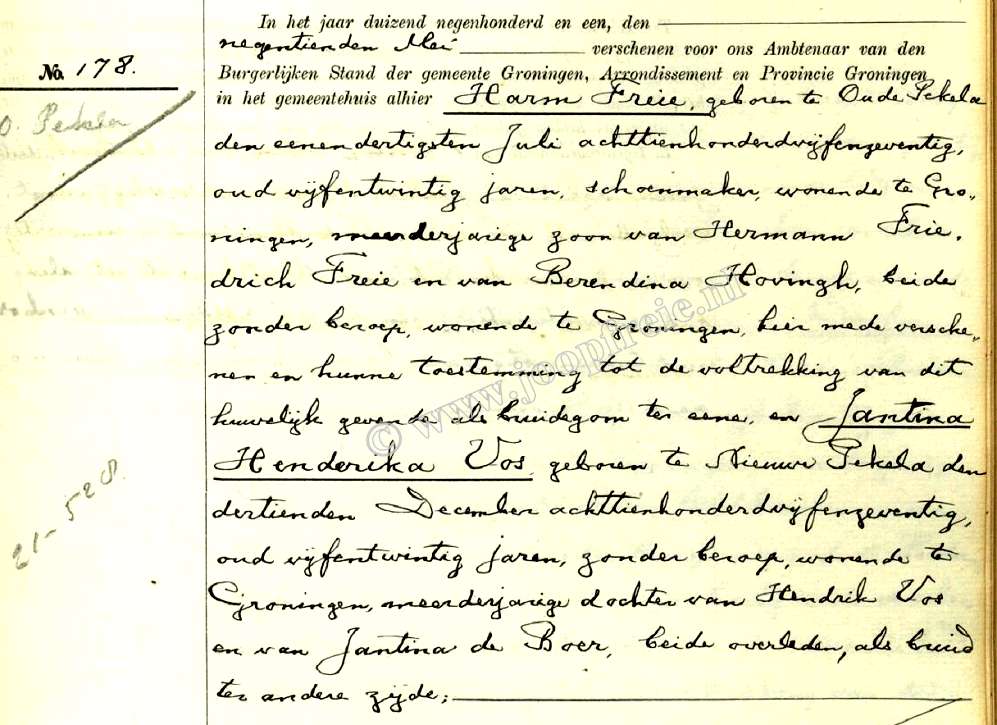 In het jaar duizend negenhonderd en een, den
negentienden Mei verschenen voor ons Ambtenaar van den
No. 178.
Burgerlijken Stand der gemeente Groningen, Arrondissement en Provincie Groningen
in het gemeentehuis alhier Harm Freie, geboren te Oude Pekela
O. Pekela
den eenendertigsten Juli achttienhonderdvijfenzeventig,
oud vijfentwintig jaren, schoenmaker, wonende te Gro„
ningen, meerderjarige zoon van Hermann Frie„
drich Freie en van Berendina Hovingh, beide
zonder beroep, wonende te Groningen, hier mede versche„
nen en hunne toestemming tot de voltrekking van dit
huwelijk gevende als bruidegom ter eene, en Jantina
Henderika Vos, geboren te Nieuwe Pekela den
21-528.
dertienden December achttienhonderdvijfenzeventig,
oud vijfentwintig jaren, zonder beroep, wonende te
Groningen, meerderjarige dochter van Hendrik Vos
en van Jantina de Boer, beide overleden, als bruid
ter andere zijde;
© www.joopfreie.nl